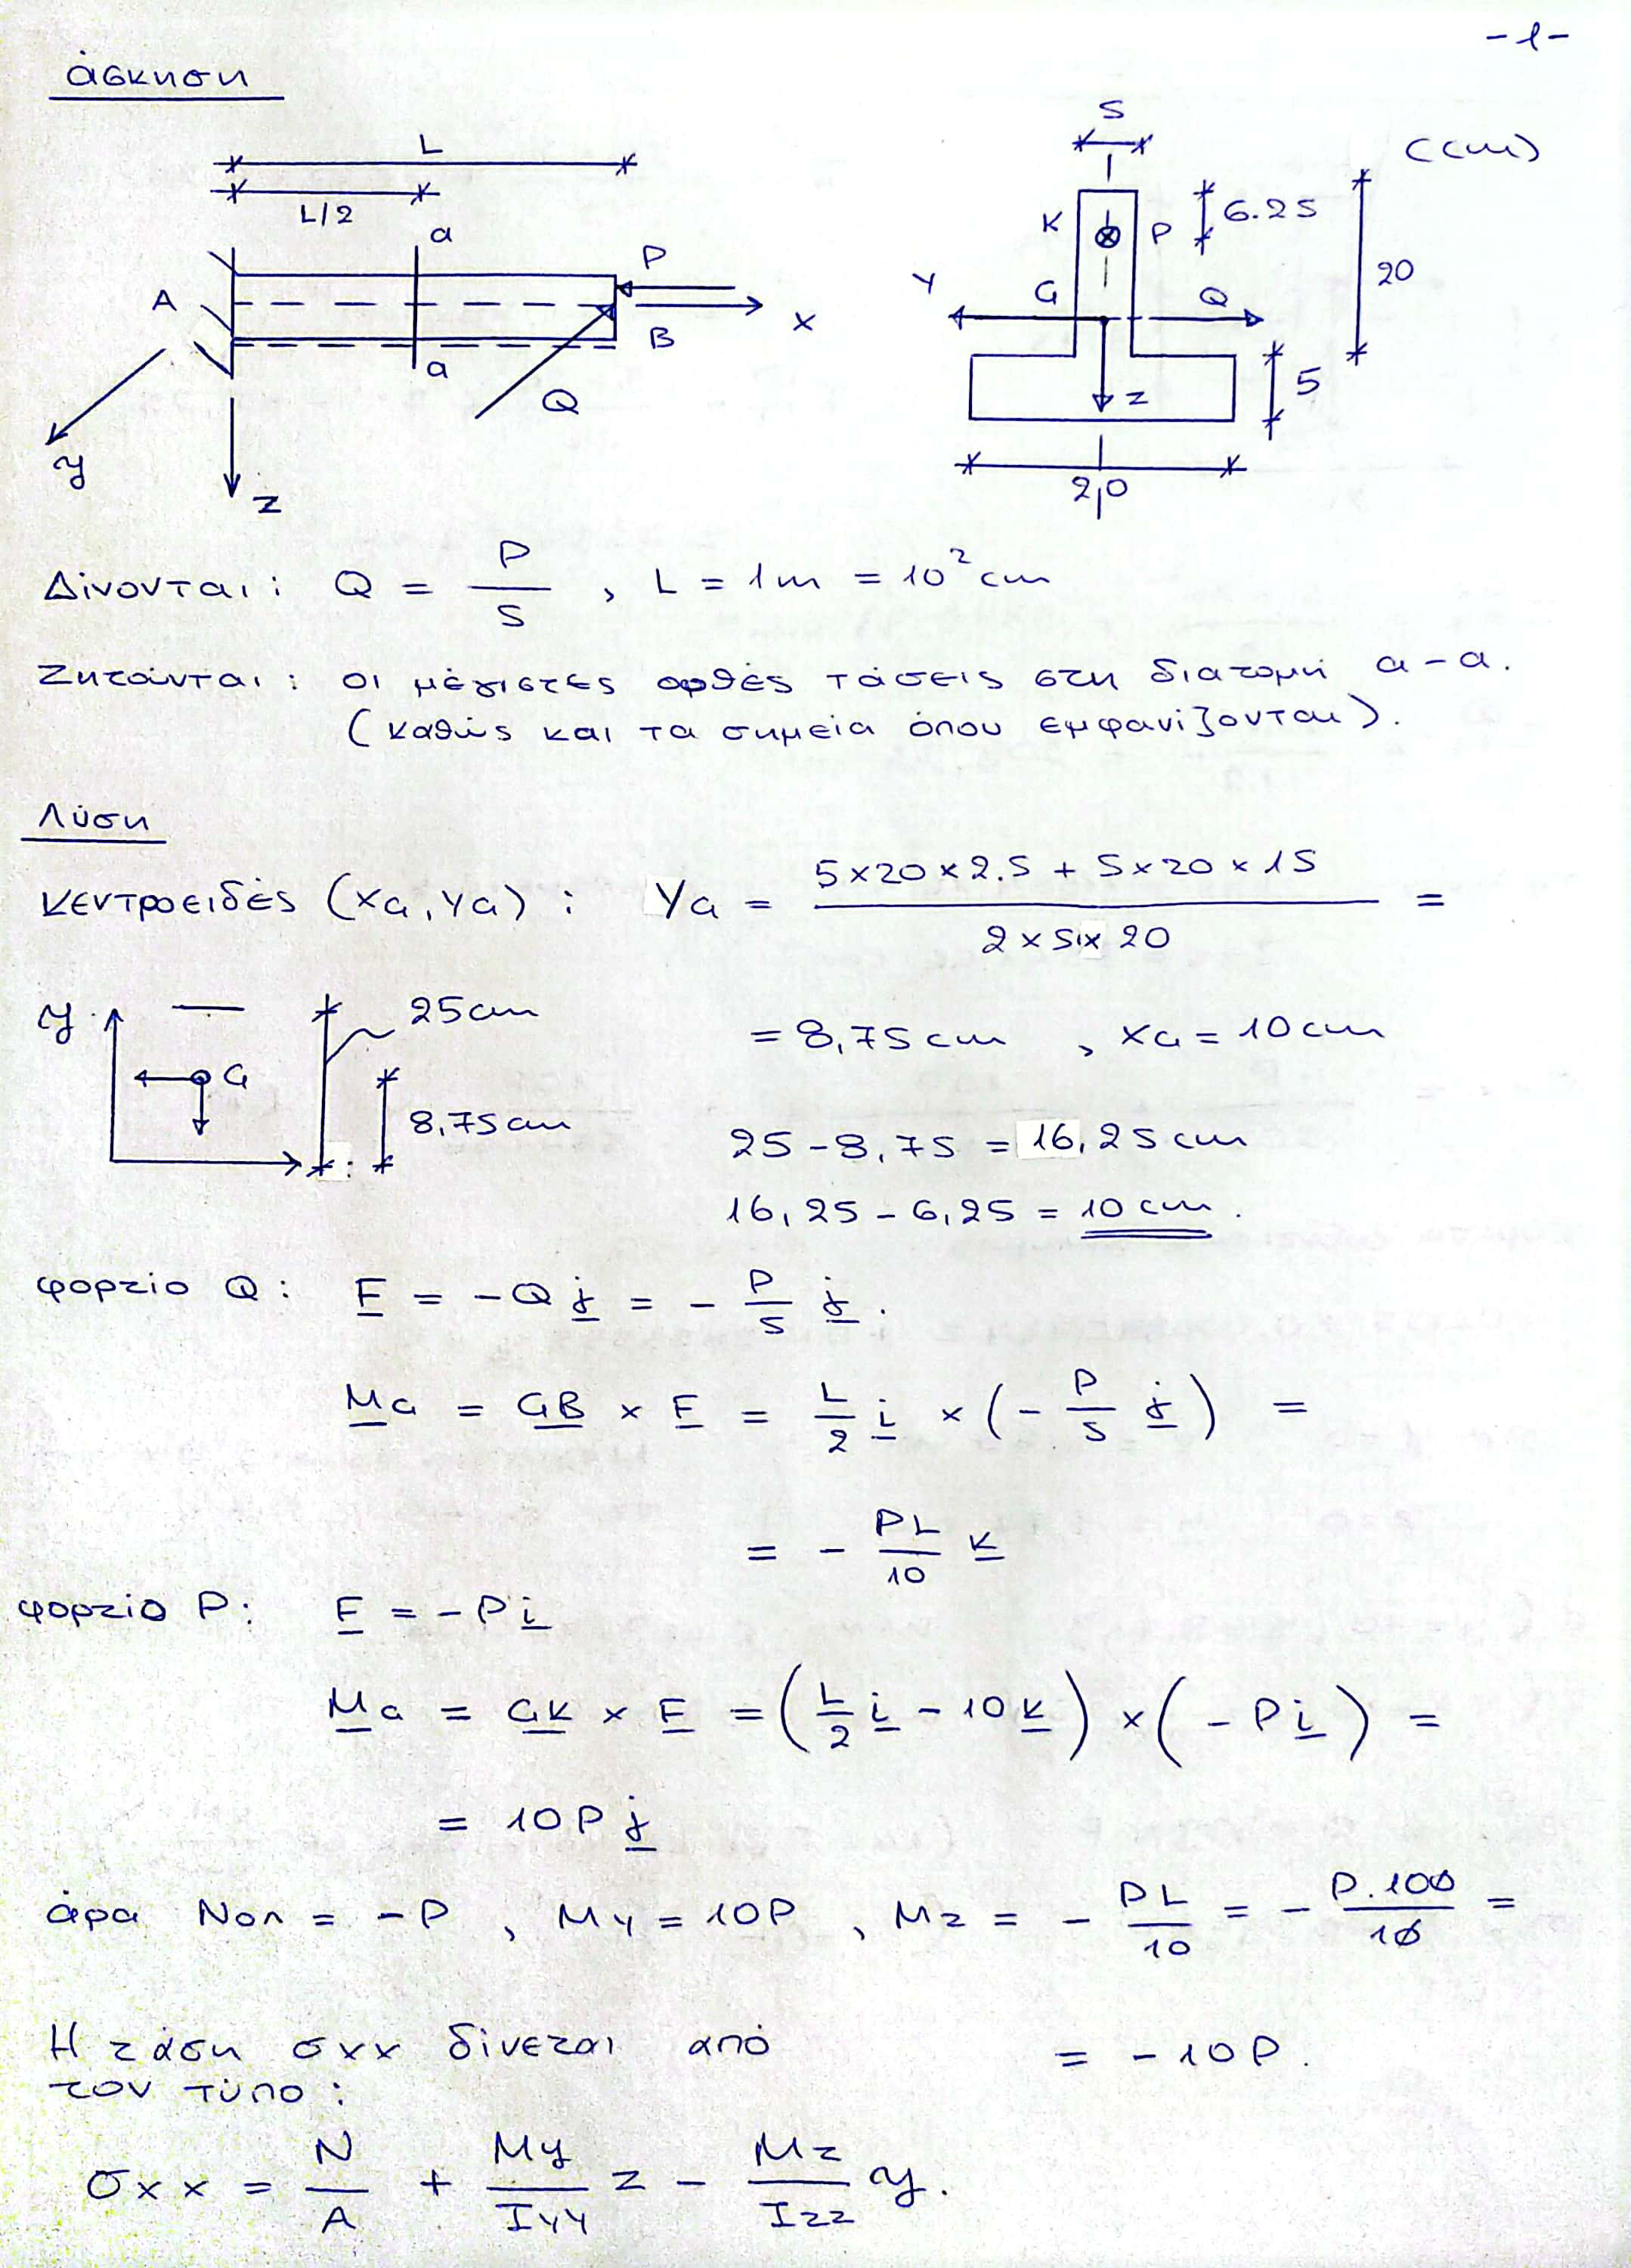 -1-
άσκηση
L
L/2
a
P
A
x
B
a
Q
y
z
5
(cm)
K
P
6.25
20
Y
G
Q
z
5
20
Δίνονται: Q = P/5 , L = 1m = 10² cm
Ζητούνται: οι μέγιστες ορθές τάσεις στη διατομή a-a.
(καθώς και τα σημεία όπου εμφανίζονται).
Λύση
κεντροειδές (x_G, y_G): y_G = (5×20×2.5 + 5×20×15)/(2×5×20) =
y
G
25cm
8,75cm
= 8,75cm , x_G = 10cm
25-8,75 = 16,25cm
16,25-6,25 = 10cm.
φορτίο Q: F = -Q j = - P/5 j.
M_G = GB × F = L/2 i × (- P/5 j) =
= - PL/10 k
φορτίο P: F = -P i
M_G = GK × F = (L/2 i - 10 k) × (-P i) =
= 10P j
άρα Νολ = -P , My = 10P , Mz = - PL/10 = - P.100/10 =
= -10P.
Η τάση σxx δίνεται από
τον τύπο:
σxx = N/A + My/Iyy z - Mz/Izz y.